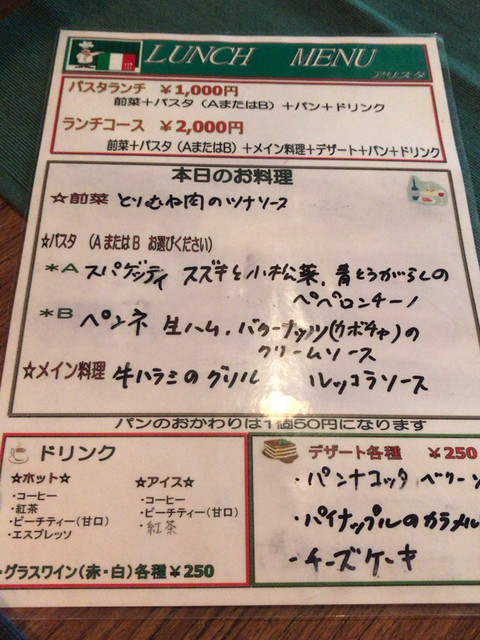 LUNCH MENU
アリスタ
パスタランチ ¥1,000円
前菜＋パスタ（AまたはB）＋パン＋ドリンク
ランチコース ¥2,000円
前菜＋パスタ（AまたはB）＋メイン料理＋デザート＋パン＋ドリンク
本日のお料理
☆前菜 とりむね肉のツナソース
☆パスタ （AまたはB お選びください）
*A スパゲッティ スズキと小松菜、青とうがらしの
ペペロンチーノ
*B ペンネ 生ハム、バターナッツ(カボチャ)の
クリームソース
☆メイン料理 牛ハラミのグリル ルッコラソース
パンのおかわりは1個50円になります
ドリンク
☆ホット☆
・コーヒー
・紅茶
・ピーチティー（甘口）
・エスプレッソ
☆アイス☆
・コーヒー
・ピーチティー（甘口）
・紅茶
・グラスワイン（赤・白）各種¥250
デザート各種 ¥250
・パンナコッタ ベリーソ
・パイナップルのカラメル
・チーズケーキ